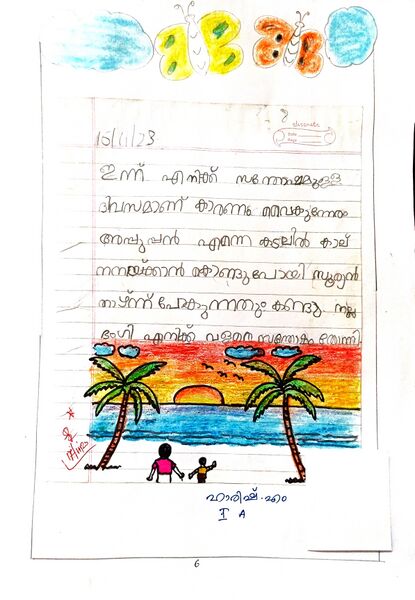 classmate
Date
Page
15/11/23
ഇന്ന് എനിക്ക് സന്തോഷമുള്ള
ദിവസമാണ് കാരണം വൈകുന്നേരം
അപ്പൂപ്പൻ എന്നെ കടലിൽ കാല്
നനയ്ക്കാൻ കൊണ്ടുപോയി സൂര്യൻ
താഴ്ന്ന് പോകുന്നതും കണ്ടു. നല്ല
ഭംഗി എനിക്ക് വളരെ സന്തോഷം തോന്നി
ഹാരിഷ്. എം
I A
6